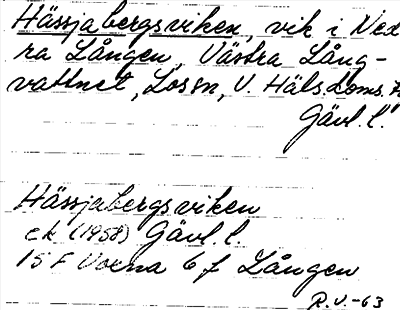 Hässjabergsviken, vik i Ned
ra Lången, Västra Lång-
vattnet, Lossn, V. Häls. Doms.
Gävl. l.
Hässjabergsviken
ek (1958) Gävl. l.
15 F Voxna 6 f Lången
R.V.-63